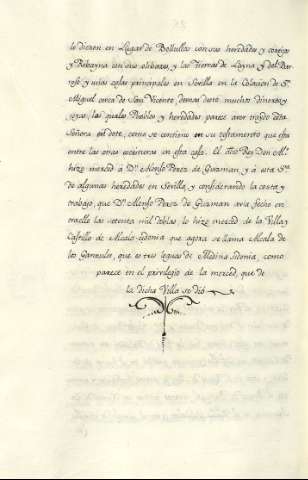 le dieron en Lugar de Bollullos con sus heredades y cortijos
y Robayna con sus olibares, y las tierras de Loyna y del Bar-
roso y unas casas principales en Sevilla en la Colacion de S.
Miguel cerca de San Vicente, demas deto muchos dineros y
joyas, las quales Pueblos y heredades parece aver traydo esta
Señora en dote, como se contiene en su testamento que esta
entre las otras escrituras en esta casa. El dicho Rey Don
hizo merced à Dn. Alonso Perez de Guzman, y à esta Sra.
de algunas heredades en Sevilla, y considerando la costa y
trabajo, que Dn. Alonso Perez de Guzman avia fecho en
traelle las setenta mil Doblas, le hizo merced de la Villa y
Castillo de Alcala Sidonia que agora se llama Alcala de
los Ganzules, que es tres leguas de Medina Sidonia, como
parece en el privilegio de la merced, que de
la dicha Villa se dió